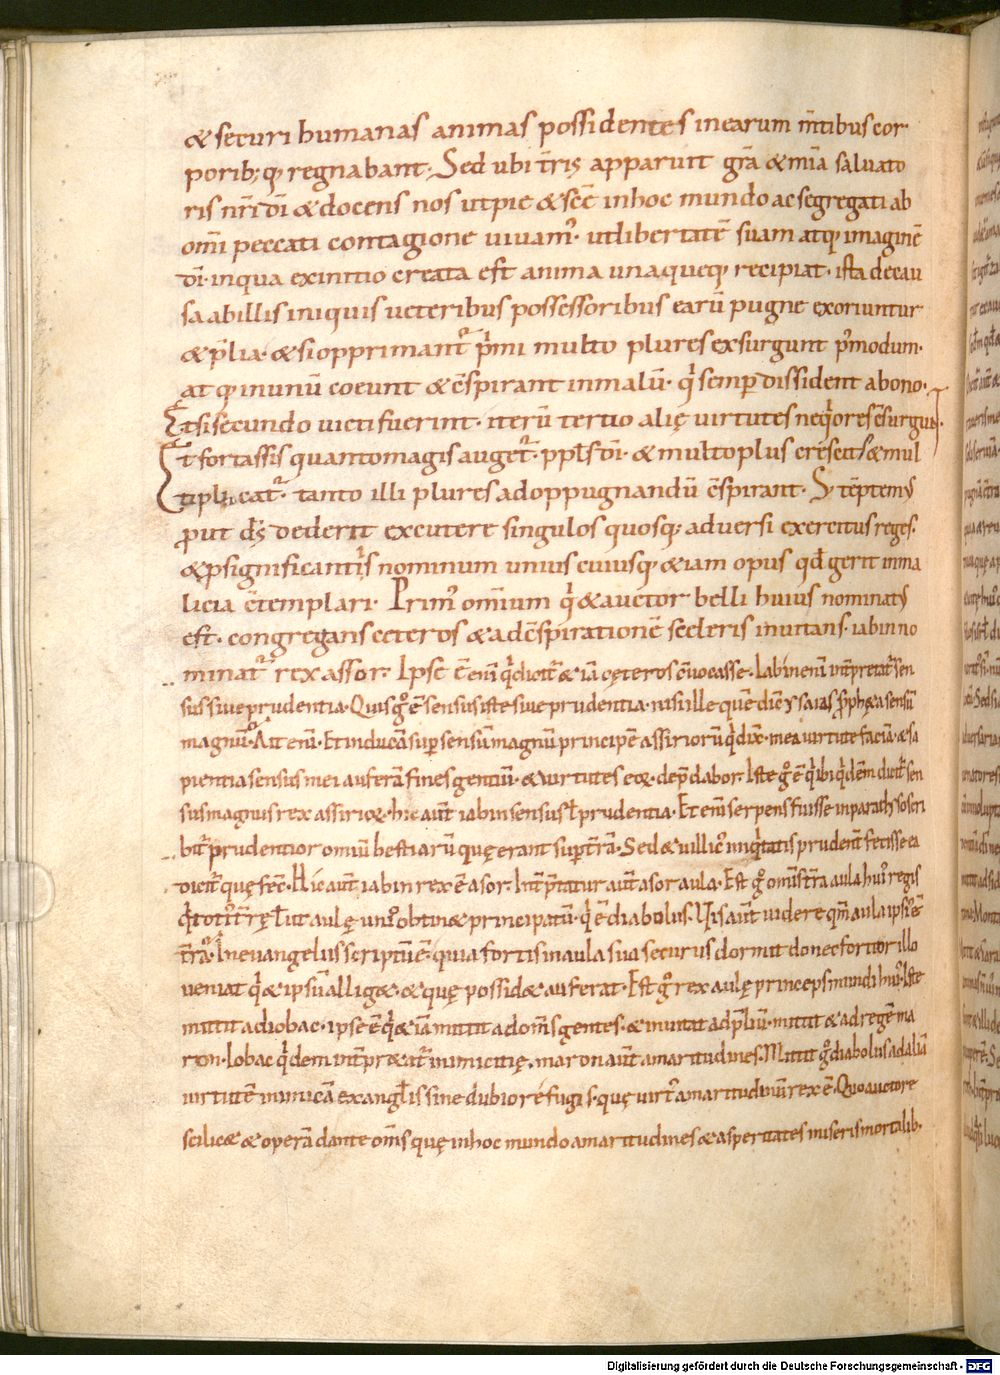 & securi humanas animas possidentes inearum m̄tibus cor
porib; q; regnabant. Sed ubi t̄ris apparuit grā & mīa saluato
ris nr̄i dī & docens nos ut pie & scē inhoc mundo ac segregati ab
omī peccati contagione uiuam᾿. ut libertatē suam atq; imaginē
dī. inqua exinitio creata est anima unaqueq; recipiat. ista decau
sa abillis iniquis ueteribus possessoribus earū pugne exoriuntur
& p̄lia. & si opprimant᾿ p̄mi multo plures exsurgunt p᾿modum.
at q; inunū coeunt & c̄spirant inmalū. qⁱ semp̄ dissident abono.
Etsi secundo uicti fuerint. iterū tertio alię uirtutes neqⁱores c̄surgunt.
Et fortassis quanto magis auget᾿. ppl̄s dī. & multo plus crescit & mul
tiplicat᾿. tanto illi plures adoppugnandū c̄spirant. S; tēptem᾿
prout dš dederit excutere singulos quosq; aduersi exercitus reges.
& p̄ significantⁱs nominum unius cuiusq; &iam opus qd̄ gerit inma
licia c̄templari. Prim᾿ omīum qⁱ & auctor belli huius nominat᾿
est. congregans ceteros & ad c̄spirationē sceleris inuitans. iabin no
minat᾿ rex assor. Ipse ē enī qⁱ dicit᾿ & iā cęteros c̄uocasse. Iabin enī int̄pretat᾿ sen
sus siue prudentia. Quis g° ē sensus iste siue prudentia. nisi ille quē dic̄ ysaias p̄ph&a sensū
magnū. Ait enī. Et inducā sup̄ sensū magnū principē assiriorū qⁱ dix̄. mea uirtute faciā. & sa
pientia sensus mei auferā fines gentiū. & uirtutes eoꝝ. dep̄dabor. Iste g° ē qⁱ ibi qⁱdē dicit᾿ sen
sus magnus rex assirioꝝ. hic aūt iabin sensus ł prudentia. Et enī serpens fuisse inparadyso scri
bit᾿ prudentior omniū bestiarū quę erant sup̄ t̄rā. Sed & uillic᾿ iniqⁱtatis prudent̄ fecisse ea
dicit᾿ quę fec̄. Hic aūt iabin rex ē asor. Int̄p̄tatur aūt asor aula. Est g° omīs t̄ra aula hui᾿ regis
qⁱ toti᾿ t̄rę ł ut aulę uni᾿ obtin& principatū. qⁱ ē diabolus. Uis aūt uidere qm̄ aula ipsi᾿ ē
t̄ra. Inęuangelus scriptū ē. quia fortis inaula sua securus dormit donec fortior illo
ueniat qⁱ & ipsū allig&. & quę possid& auferat. Est g° rex aulę princeps mundi hui᾿. Iste
mittit adiobac. ipse ē qⁱ & iā mittit adom̄s gentes. & inuitat adp̄liū. mittit & adregē ma
ron. Iobac qⁱdem int̄pr&at᾿ inimicitię. maron aūt amaritudines. Mittit g° diabolus adaliā
uirtutē inimicā exangl̄is sine dubio refugis. quę uirt᾿ amaritudinū rex ē. Quo auctore
scilic& & operā dante om̄s quę inhoc mundo amaritudines & asperitates miseris mortalib;
Digitalisierung gefördert durch die Deutsche Forschungsgemeinschaft - DFG